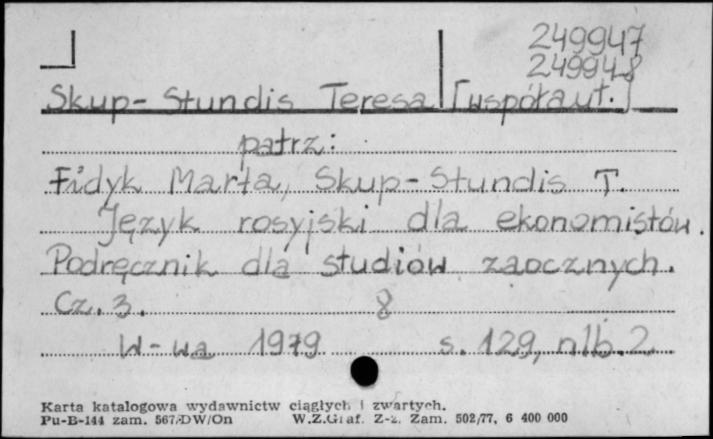 249947
249948
Skup-Stundis Teresa [współaut.]
patrz:
Fidyk Marta, Skup-Stundis T.
Język rosyjski dla ekonomistów.
Podręcznik dla studiów zaocznych.
Cz. 3. 8
W-wa 1979 s. 129, nlb. 2
Karta katalogowa wydawnictw ciągłych i zwartych.
Pu-B-144 zam. 567/DW/On W.Z.Graf. Z-z. Zam. 502/77, 6 400 000